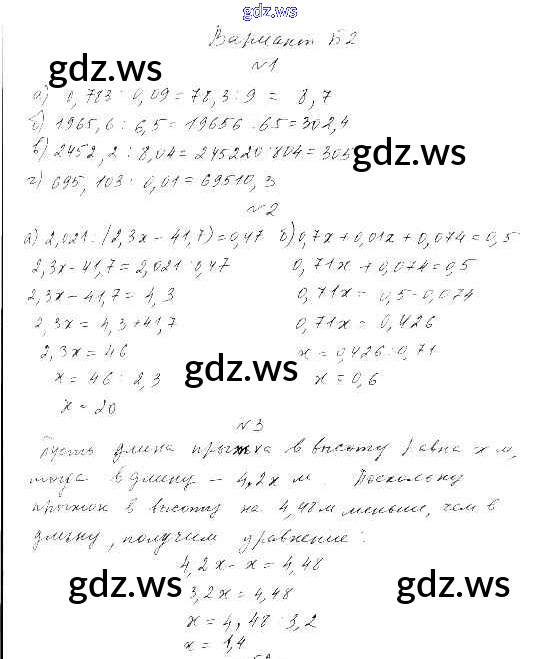 gdz.ws
Вариант Б2
№1
gdz.ws
а) 0,783 : 0,09 = 78,3 : 9 = 8,7
б) 1965,6 : 6,5 = 19656 : 65 = 302,4
в) 2452,2 : 8,04 = 245220 : 804 = 305
gdz.ws
г) 695,103 : 0,01 = 69510,3
№2
а) 2,021 : (2,3x - 41,7) = 0,47 б) 0,7x + 0,01x + 0,074 = 0,5
2,3x - 41,7 = 2,021 : 0,47 0,71x + 0,074 = 0,5
2,3x - 41,7 = 4,3 0,71x = 0,5 - 0,074
2,3x = 4,3 + 41,7 0,71x = 0,426
2,3x = 46 x = 0,426 : 0,71
gdz.ws
x = 46 : 2,3 x = 0,6
x = 20
№3
Пусть длина прыжка в высоту равна x м,
тогда в длину - 4,2x м. Поскольку
прыжок в высоту на 4,48 м меньше, чем в
длину, получим уравнение:
4,2x - x = 4,48
gdz.ws gdz.ws
3,2x = 4,48
x = 4,48 : 3,2
x = 1,4